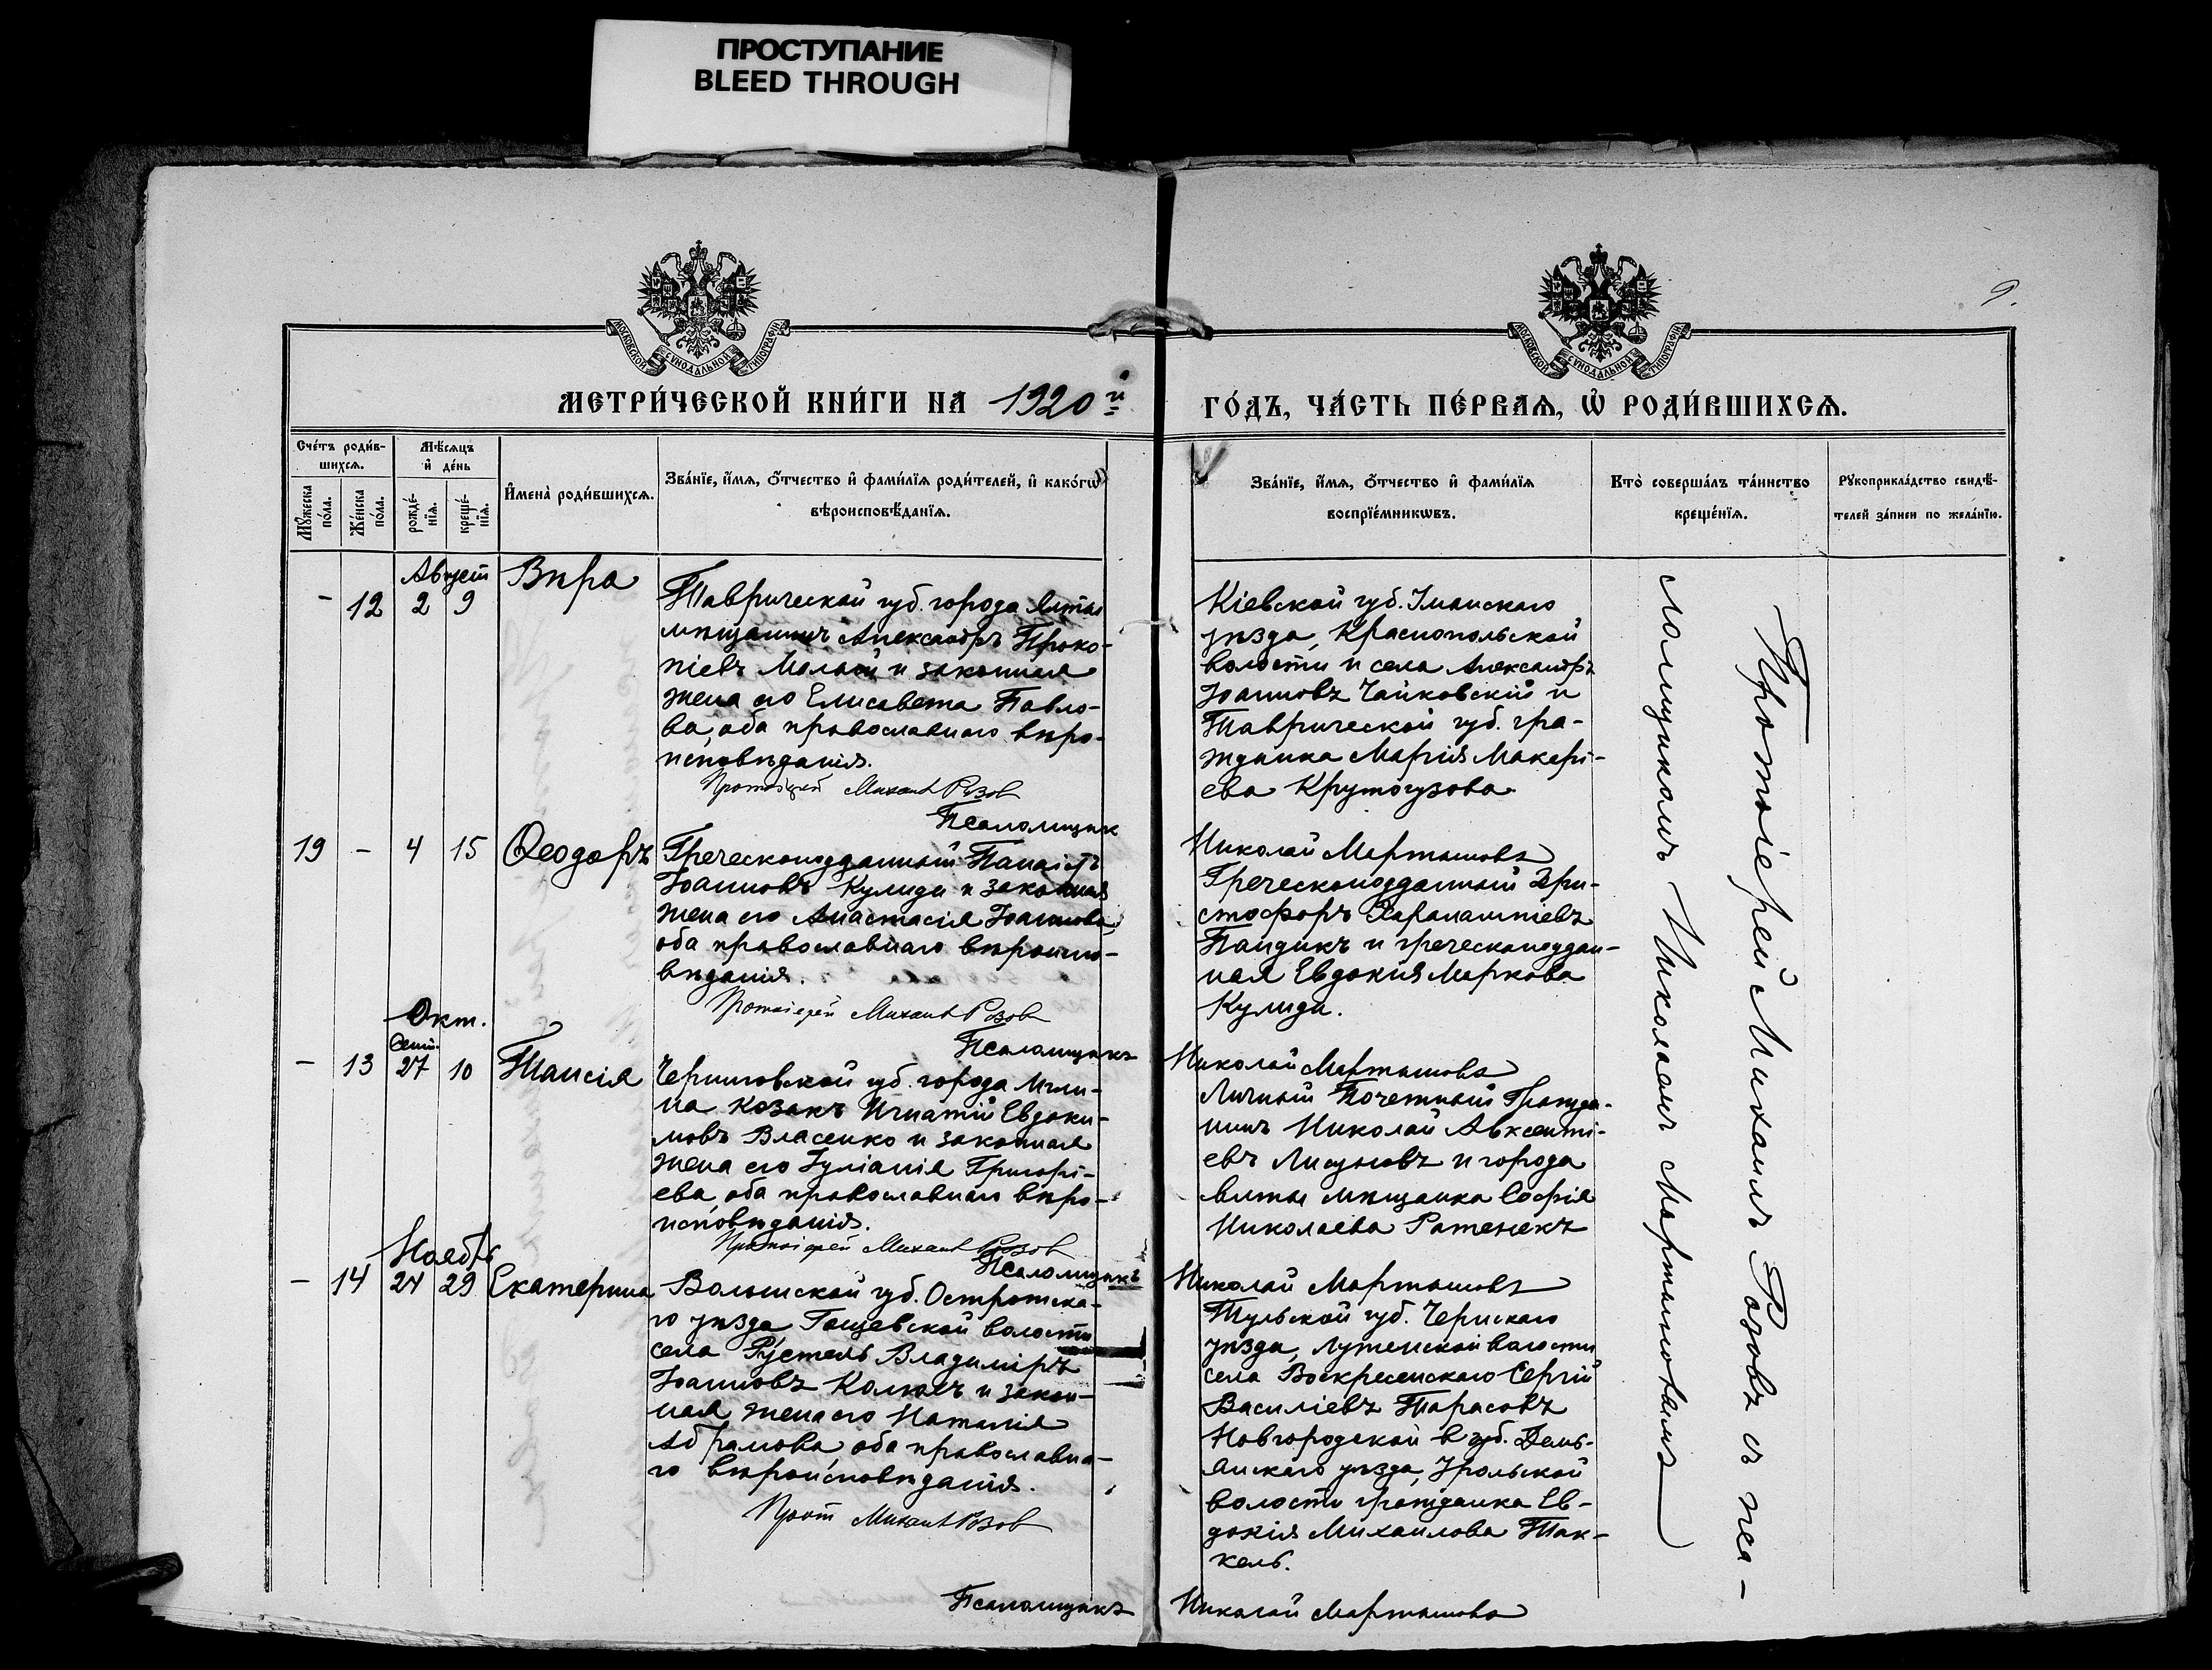 ПРОСТУПАНИЕ
BLEED THROUGH
9.
МОСКОВСКОЙ СѴНОДАЛЬНОЙ ТИПОГРАФІИ
МОСКОВСКОЙ СѴНОДАЛЬНОЙ ТИПОГРАФІИ
МЕТРИ́ЧЕСКОЙ КНИ́ГИ НА 1920й
ГО́ДЪ, ЧА́СТЬ ПЕ́РВАѦ, Ѡ҆ РОДИ́ВШИХСѦ.
Сче́тъ роди́в-
шихсѧ.
Мꙋ́жеска
по́ла.
Же́нска
по́ла.
Мѣ́сѧцъ
и҆ де́нь
рожде́-
нїѧ.
креще́-
нїѧ.
И҆мена̀ роди́вшихсѧ.
Зва́нїе, и҆́мѧ, ѻ҆́тчество и҆ фами́лїѧ роди́телей, и҆ како́гѡ
вѣроисповѣ́данїѧ.
Зва́нїе, и҆́мѧ, ѻ҆́тчество и҆ фами́лїѧ
воспрїе́мникѡвъ.
Кто̀ соверша́лъ та́инство
креще́нїѧ.
Рꙋкоприкла́дство свидѣ́-
телей за́писи по жела́нїю.
Август
- 12 2 9 Вѣра
Таврической губ. города Ялты
мѣщанинъ Александръ Проко-
піевъ Малый и законная
жена его Елисавета Павло-
ва, оба православнаго вѣро-
исповѣданія.
Протоіерей Михаил Розов
Псаломщик
Кіевской губ. Уманскаго
уѣзда, Краснопольской
волости и села Александръ
Іоанновъ Чайковскій и
Таврической губ. гра-
жданка Марія Макарі-
ева Крутогузова
Николай Мартыновъ
19 - 4 15 Ѳеодоръ
Греческоподданный Панаіотъ
Іоанновъ Кулиди и законная
жена его Анастасія Іоаннова,
оба православнаго вѣроиспо-
вѣданія.
Протоіерей Михаил Розов
Псаломщикъ
Греческоподданный Хри-
стофоръ Харалампіевъ
Пандикъ и греческоподдан-
ная Евдокія Маркова
Кулиди.
Николай Мартыновъ
Окт.
Сент.
- 13 27 10 Таисія
Черниговской губ. города Мгли-
на козакъ Игнатій Евдоки-
мовъ Власенко и законная
жена его Іуліанія Григорі-
ева, оба православнаго вѣро-
исповѣданія.
Протоіерей Михаил Розов
Псаломщикъ
Личный Почетный Гражда-
нинъ Николай Авксенті-
евъ Лисуновъ и города
Ялты мѣщанка Софія
Николаева Ратенекъ
Николай Мартыновъ
Ноябрь
- 14 24 29 Екатерина
Волынской губ. Острожска-
го уѣзда Гощевской волости
села Рустель Владиміръ
Іоанновъ и закон-
ная жена его Наталія
Абрамова оба православна-
го вѣроисповѣданія.
Прот Михаил Розов
Псаломщикъ
Тульской губ. Чернскаго
уѣзда, волости
села Воскресенскаго Сергій
Василіевъ Тарасовъ
Новгородской губ. Демь-
янскаго уѣзда,
волости гражданка Ев-
докія Михаилова Так-
кель.
Николай Мартыновъ
Протоіерей Михаилъ Розовъ съ пса-
ломщикомъ Николаемъ Мартыновымъ